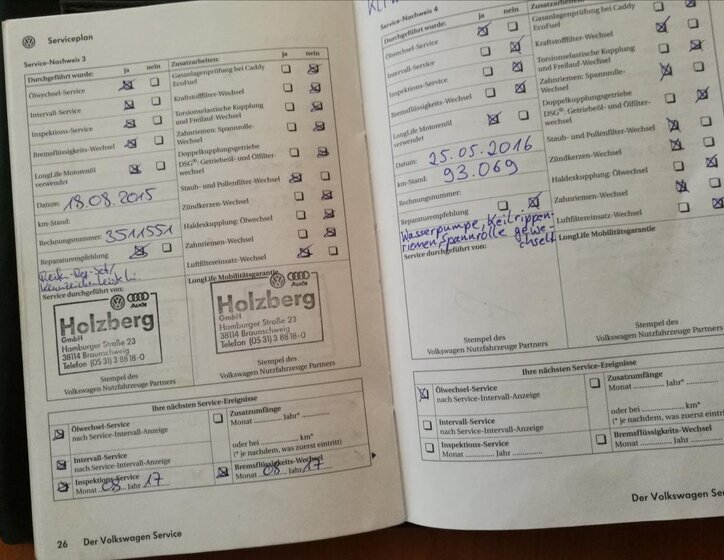 Serviceplan
Service-Nachweis 3
Durchgeführt wurde: ja nein
Ölwechsel-Service
Intervall-Service
Inspektions-Service
Bremsflüssigkeits-Wechsel
LongLife Motorenöl
verwendet
Datum: 18.08.2015
km-Stand:
Rechnungsnummer: 3511551
Reparaturempfehlung
Service durchgeführt von:
Holzberg
GmbH
Hamburger Straße 23
38114 Braunschweig
Telefon (05 31) 3 88 18-0
Stempel des
Volkswagen Nutzfahrzeuge Partners
Zusatzarbeiten: ja nein
Gasanlagenprüfung bei Caddy
EcoFuel
Kraftstofffilter-Wechsel
Torsionselastische Kupplung
und Freilauf-Wechsel
Zahnriemen: Spannrolle-
Wechsel
Doppelkupplungsgetriebe
DSG®: Getriebeöl- und Ölfilter-
wechsel
Staub- und Pollenfilter-Wechsel
Zündkerzen-Wechsel
Haldexkupplung: Ölwechsel
Zahnriemen-Wechsel
Luftfiltereinsatz-Wechsel
LongLife Mobilitätsgarantie
Audi
Holzberg
GmbH
Hamburger Straße 23
38114 Braunschweig
Telefon (05 31) 3 88 18-0
Stempel des
Volkswagen Nutzfahrzeuge Partners
Ihre nächsten Service-Ereignisse
Ölwechsel-Service
nach Service-Intervall-Anzeige
Intervall-Service
nach Service-Intervall-Anzeige
Inspektions-Service
Monat 08 Jahr 17
Zusatzumfänge
Monat Jahr*
oder bei km*
(* je nachdem, was zuerst eintritt)
Bremsflüssigkeits-Wechsel
Monat 08 Jahr 17
26 Der Volkswagen Service
Service-Nachweis 4
Durchgeführt wurde: ja nein
Ölwechsel-Service
Intervall-Service
Inspektions-Service
Bremsflüssigkeits-Wechsel
LongLife Motorenöl
verwendet
Datum: 25.05.2016
km-Stand: 93.069
Rechnungsnummer:
Reparaturempfehlung
Wasserpumpe, Keilrippen-
riemen, Spannrolle gewe-
chselt
Service durchgeführt von:
Stempel des
Volkswagen Nutzfahrzeuge Partners
Gasanlagenprüfung bei Caddy
EcoFuel
Kraftstofffilter-Wechsel
Torsionselastische Kupplung
und Freilauf-Wechsel
Zahnriemen: Spannrolle-
Wechsel
Doppelkupplungsgetriebe
DSG®: Getriebeöl- und Ölfilter-
wechsel
Staub- und Pollenfilter-Wechsel
Zündkerzen-Wechsel
Haldexkupplung: Ölwechsel
Zahnriemen-Wechsel
Luftfiltereinsatz-Wechsel
LongLife Mobilitätsgarantie
Stempel des
Volkswagen Nutzfahrzeuge Partners
Ihre nächsten Service-Ereignisse
Ölwechsel-Service
nach Service-Intervall-Anzeige
Intervall-Service
nach Service-Intervall-Anzeige
Inspektions-Service
Monat Jahr
Zusatzumfänge
Monat Jahr*
oder bei km*
(* je nachdem, was zuerst eintritt)
Bremsflüssigkeits-Wechsel
Monat Jahr
Der Volkswagen